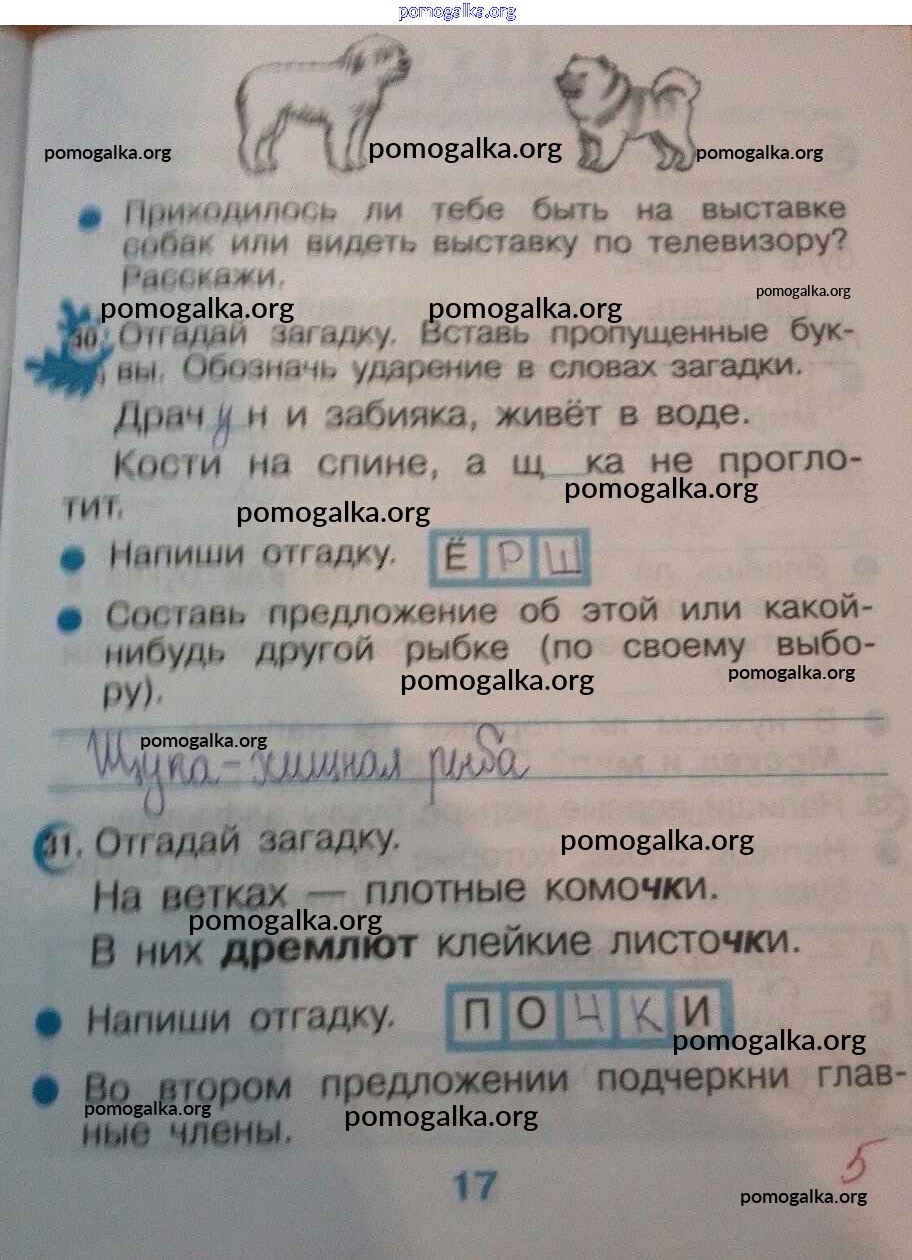 pomogalka.org
pomogalka.org pomogalka.org pomogalka.org
Приходилось ли тебе быть на выставке
собак или видеть выставку по телевизору?
Расскажи.
pomogalka.org
pomogalka.org pomogalka.org
30. Отгадай загадку. Вставь пропущенные бук-
вы. Обозначь ударение в словах загадки.
Драч у н и забияка, живёт в воде.
Кости на спине, а щ_ка не прогло-
pomogalka.org
тит.
pomogalka.org
Напиши отгадку. ЁРШ
Составь предложение об этой или какой-
нибудь другой рыбке (по своему выбо-
pomogalka.org pomogalka.org
ру).
pomogalka.org
Щука - хищная рыба
31. Отгадай загадку.
pomogalka.org
На ветках — плотные комочки.
pomogalka.org
В них дремлют клейкие листочки.
Напиши отгадку. ПОЧКИ
pomogalka.org
Во втором предложении подчеркни глав-
pomogalka.org pomogalka.org
ные члены.
17
5
pomogalka.org